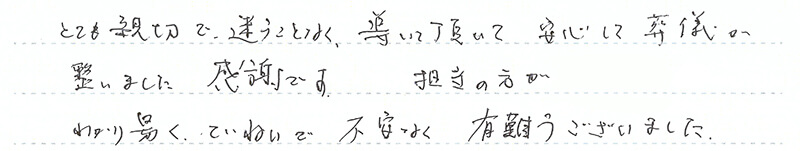 とても親切で、迷うことなく、導いて頂いて 安心して 葬儀が
整いました 感謝です。 担当の方が
わかり易く、ていねいで 不安なく 有難うございました。